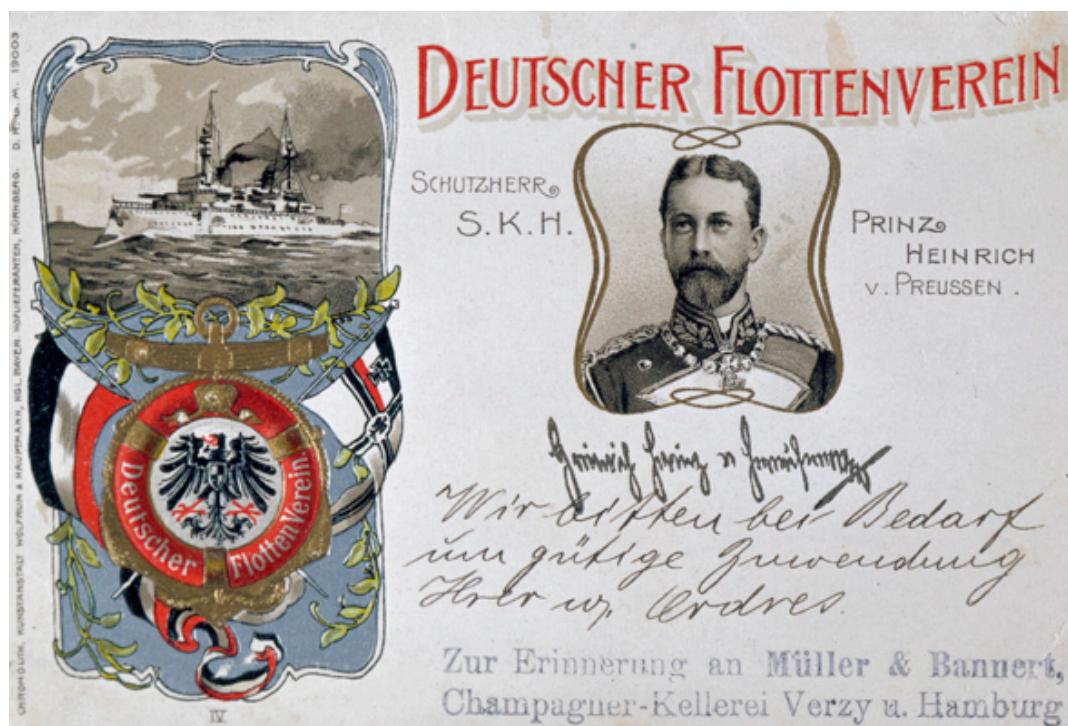 DEUTSCHER FLOTTENVEREIN
SCHUTZHERR
S. K. H.
PRINZ
HEINRICH
V. PREUSSEN.
Heinrich Prinz v Preussen
Wir bitten bei Bedarf
um gütige Zuwendung
Ihrer w. Ordres.
Zur Erinnerung an Müller & Bannert,
Champagner-Kellerei Verzy u. Hamburg
Deutscher FlottenVerein.
IV
CHROMOLITH. KUNSTANSTALT WOLFRUM & HAUPTMANN, KGL. BAYER. HOFLIEFERANTEN, NÜRNBERG. D. R. G. M. 19003